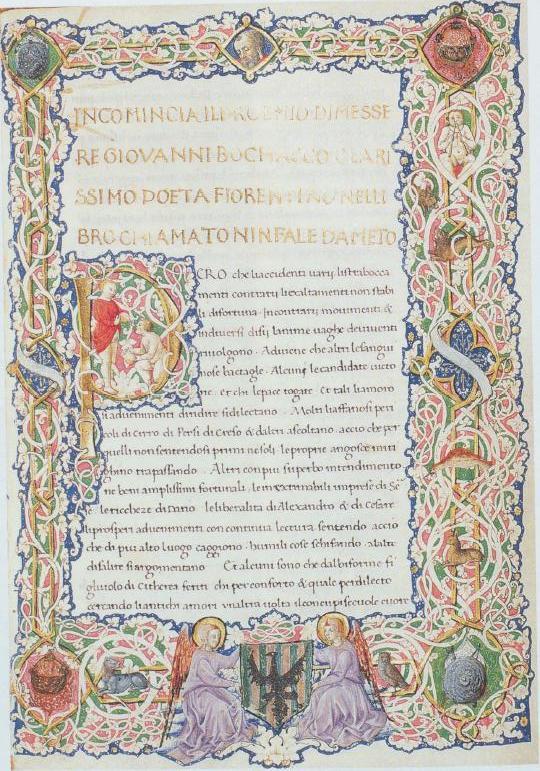 INCOMINCIA IL PROEMIO DI MESSE
RE GIOVANNI BOCHACCO CLARI
SSIMO POETA FIORENTINO NELLI
BRO CHIAMATO NINFALE DAMETO
PERO che li accidenti varii
menti contrarii li exaltamenti non stabi
li di fortuna. Incontrarii movimenti &
indiversi disii lanime vaghe de viventi
rivolgono. Adviene che altri le sangui
nose bactagle. Alcuni le candidate victo
rie. et chi le pace togate. Et tali li amoro
si advenimenti dindire si dilectano. Molti li affannosi peri
coli di Cirro di Persi di Creso & daltri ascoltano. accio che per
quelli non sentendosi primi ne soli. le proprie angosce miti
ghino trapassando. Altri con piu superbo intendimento
ne beni amplissimi fortunali. le inextimabili imprese di
le richeze di Dario. le liberalita di Alexandro & di Cesare
li prosperi advenimenti con continua lectura sentendo. accio
che di piu alto luogo caggiono. humili cose schifando. alalte
di salire si argomentano. Et alcuni sono che dal biforme fi
gliuolo di Citherea feriti chi per conforto & quale per dilecto
cercando li antichi amori unaltra volta il concupiscevole cuore